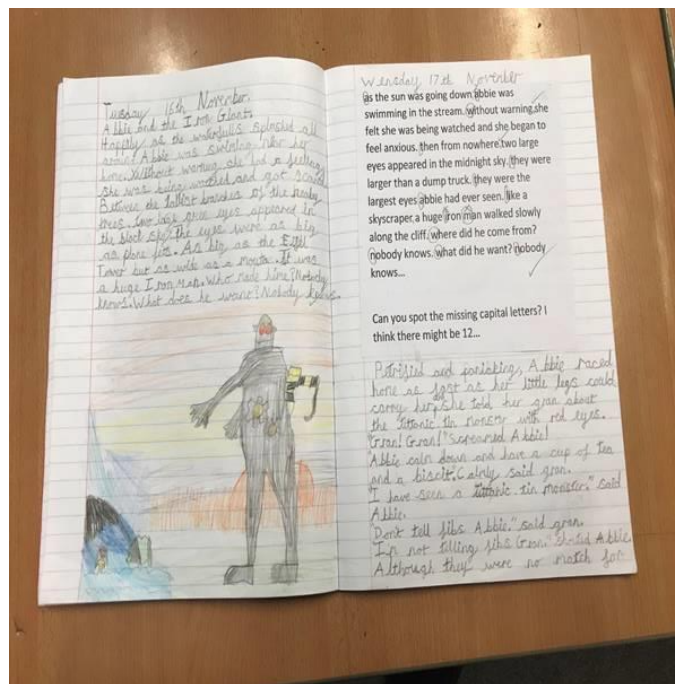 Tuesday 16th November.
Abbie and the Iron Giant.
Happily as the waterfalls splashed all
around Abbie was swiming near her
home. Without warning she had a feeling
she was being watched and got scared
Between the tallest branches of the nearby
trees. two large eyes appeared in
the black sky. the eyes were as big
as plane jets. As big as the Eiffel
Tower but as wide as a mouth. It was
a huge Iron Man. Who made hime? Nobody
knows. What does he want? Nobody knows.
Wensday 17th November
as the sun was going down abbie was
swimming in the stream. without warning,she
felt she was being watched and she began to
feel anxious. then from nowhere,two large
eyes appeared in the midnight sky. they were
larger than a dump truck. they were the
largest eyes abbie had ever seen. like a
skyscraper,a huge iron man walked slowly
along the cliff. where did he come from?
nobody knows. what did he want? nobody
knows...
Can you spot the missing capital letters? I
think there might be 12...
Petrified and panicking, Abbie raced
home as fast as her little legs could
carry her, she told her gran about
the tittanic tin monster with red eyes.
"Gran! Gran!" Screamed Abbie!
"Abbie caln down and have a cup of tea
and a biscit, Calnly said gran.
"I have seen a tittanic tin monster." said
Abbie.
"Don't tell fibs Abbie." said gran.
"I'm not telling fibs Gran." shouted Abbie.
Although they were no match for